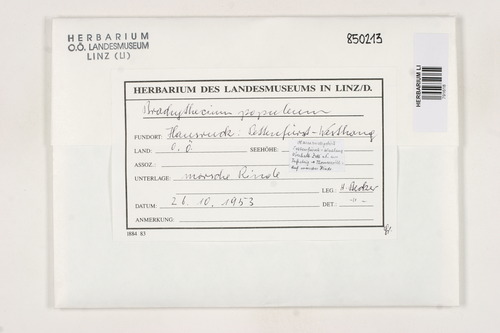 HERBARIUM
O.Ö. LANDESMUSEUM
LINZ (LI)
850213
HERBARIUM LI
HERBARIUM DES LANDESMUSEUMS IN LINZ/D.
Brachythecium populeum
FUNDORT: Hausruck:
LAND: O.Ö.
SEEHÖHE:
ASSOZ.:
UNTERLAGE: morsche Rinde
LEG: H. Becker
DATUM: 26. 10. 1953
DET: -"-
ANMERKUNG:
1884 83